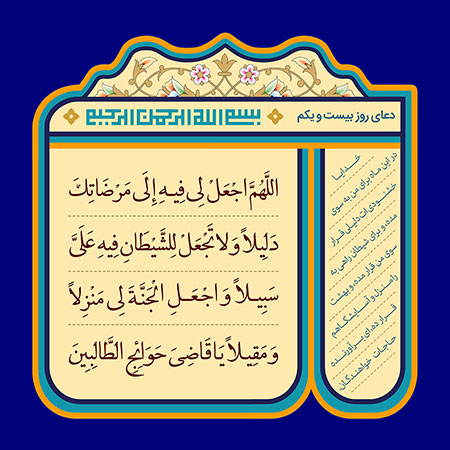 دعای روز بیست و یکم
بسم الله الرحمن الرحیم
اللَّهُمَّ اجْعَلْ لِی فِیهِ إِلَى مَرْضَاتِكَ
دَلِیلاً وَلا تَجْعَلْ لِلشَّیْطَانِ فِیهِ عَلَیَّ
سَبِیلاً وَ اجْعَلِ الْجَنَّةَ لِی مَنْزِلاً
وَ مَقِیلاً یَا قَاضِیَ حَوَائِجِ الطَّالِبِینَ
خدایا
در این ماه برای من به سوی
خشنودی‌ات دلیلی قرار
مده، و برای شیطان راهی به
سوی من قرار مده، و بهشت
را منزل و آسایشگاهم
قرار ده ای برآورنده
حاجات خواهندگان.